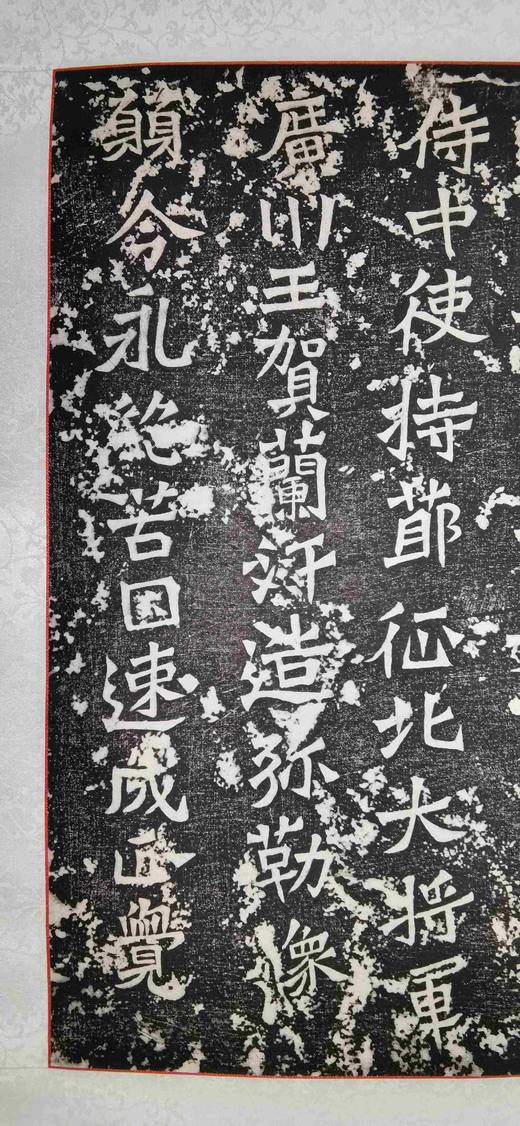 侍中使持莭征北大将軍
廣川王賀蘭汗造弥勒像
願令永絶苦因速成正覺